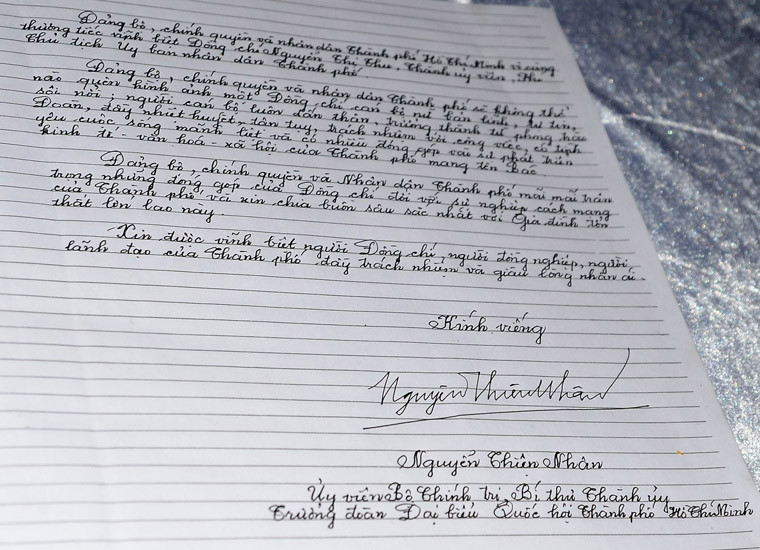 Đảng bộ, chính quyền và nhân dân Thành phố Hồ Chí Minh vô cùng
thương tiếc vĩnh biệt Đồng chí Nguyễn Thị Thu, Thành ủy viên, Phó
Chủ tịch Ủy ban nhân dân Thành phố
Đảng bộ, chính quyền và nhân dân Thành phố sẽ không thể
nào quên hình ảnh một Đồng chí cán bộ nữ bản lĩnh, tự tin,
sôi nổi, người cán bộ luôn dấn thân, trưởng thành từ phong trào
Đoàn, đầy nhiệt huyết, tận tụy, trách nhiệm với công việc, có tình
yêu cuộc sống mãnh liệt và có nhiều đóng góp vào sự phát triển
kinh tế - văn hoá - xã hội của Thành phố mang tên Bác
Đảng bộ, chính quyền và Nhân dân Thành phố mãi mãi trân
trọng những đóng góp của Đồng chí đối với sự nghiệp cách mạng
của Thành phố và xin chia buồn sâu sắc nhất với Gia đình tổn
thất lớn lao này.
Xin được vĩnh biệt người Đồng chí, người đồng nghiệp, người
lãnh đạo của Thành phố đầy trách nhiệm và giàu lòng nhân ái.
Kính viếng
Nguyễn Thiện Nhân
Nguyễn Thiện Nhân
Ủy viên Bộ Chính trị, Bí thư Thành ủy
Trưởng đoàn Đại biểu Quốc hội Thành phố Hồ Chí Minh